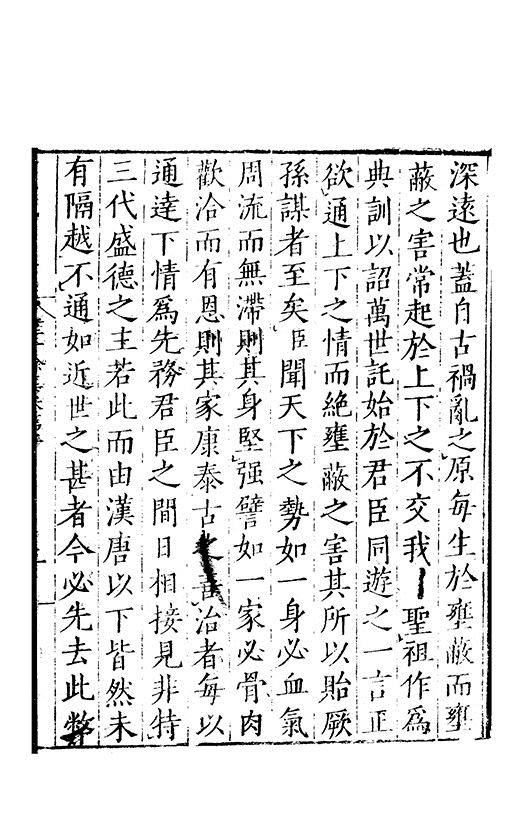 深遠也蓋自古禍亂之原每生於壅蔽而壅
蔽之害常起於上下之不交我聖祖作爲
典訓以詔萬世託始於君臣同遊之一言正
欲通上下之情而絶壅蔽之害其所以貽厥
孫謀者至矣臣聞天下之勢如一身必血氣
周流而無滯則其身堅强譬如一家必骨肉
歡洽而有恩則其家康泰古之善治者每以
通達下情爲先務君臣之間日相接見非特
三代盛德之主若此而由漢唐以下皆然未
有隔越不通如近世之甚者今必先去此弊